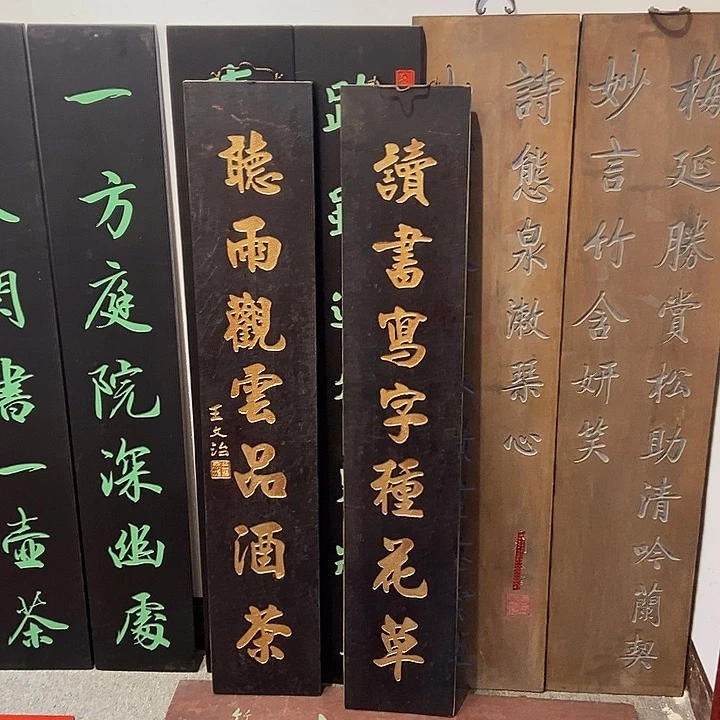 梅延勝賞松助清吟蘭契
妙言竹含妍笑
詩態泉漱琴心
讀書寫字種花草
聽雨觀雲品酒茶
王文治
一方庭院深幽處
書一壺茶